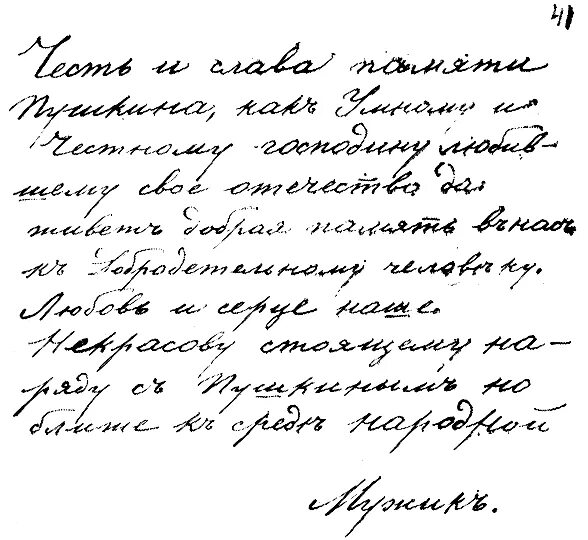 41
Честь и слава памяти
Пушкина, какъ Умному и
Честному господину любив-
шему свое отечества да
живетъ добрая память въ насъ
къ Добродетельному человѣку.
Любовь и серце наше.
Некрасову стоящему на-
ряду съ Пушкинымъ но
ближе къ средѣ народной
Мужикъ.